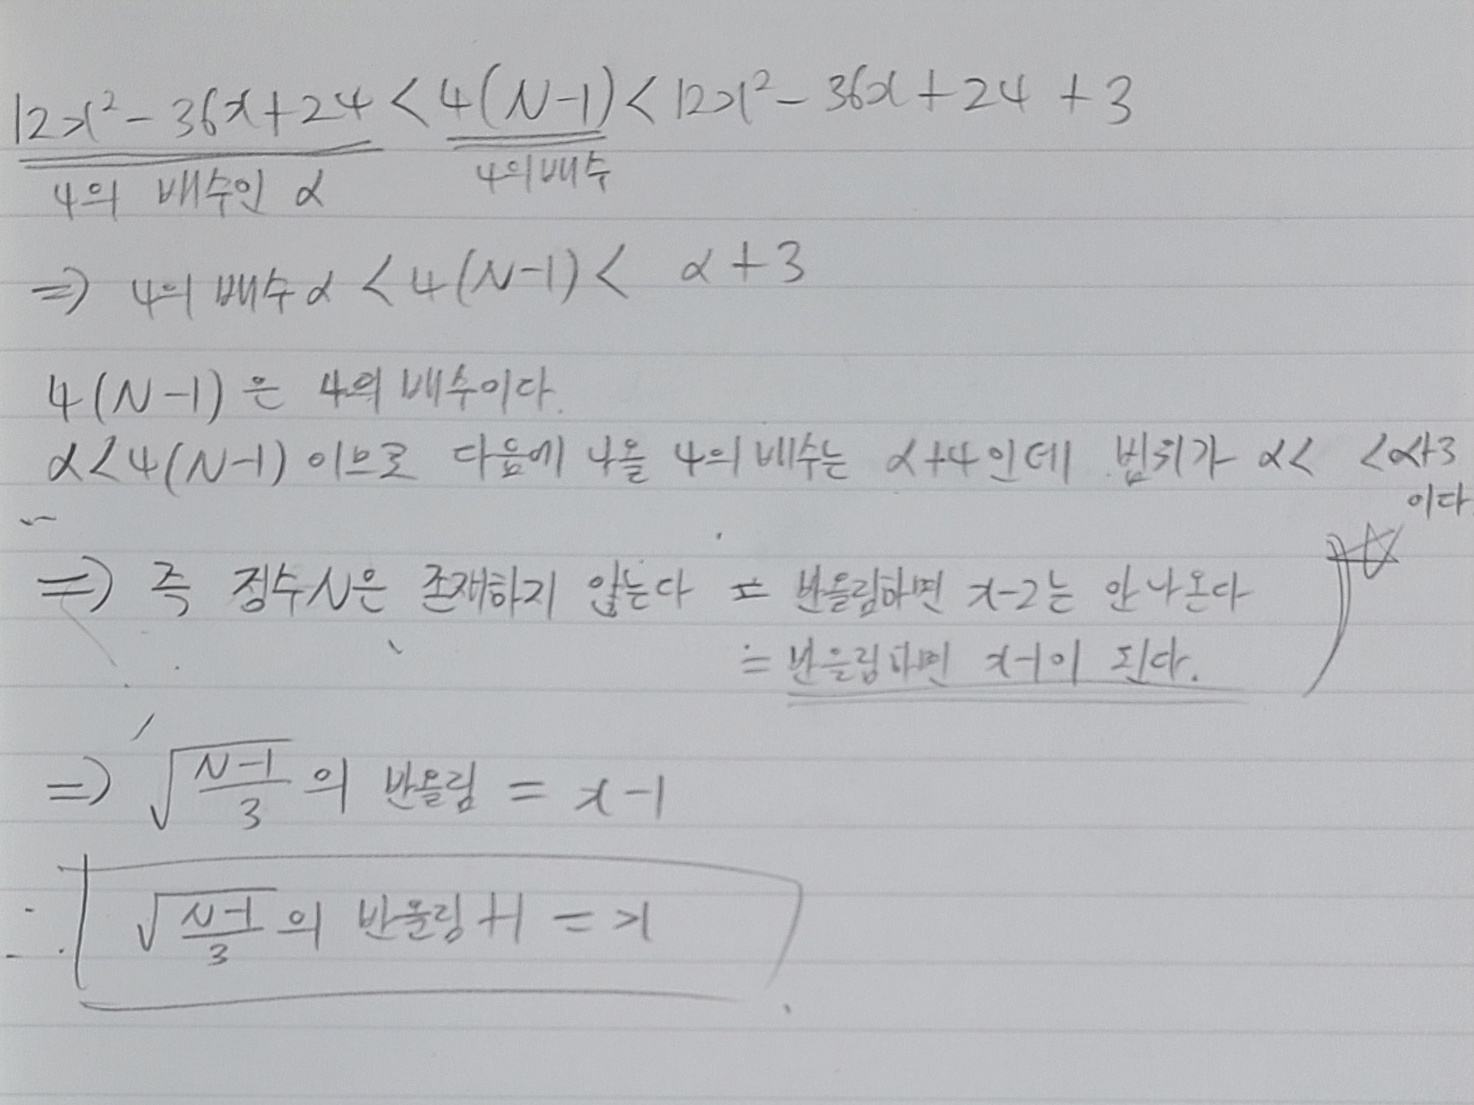 12x² - 36x + 24 < 4(N-1) < 12x² - 36x + 24 + 3
4의 배수인 α 4의 배수
⇒ 4의 배수 α < 4(N-1) < α + 3
4(N-1)은 4의 배수이다.
α < 4(N-1) 이므로 다음에 나올 4의 배수는 α+4인데 범위가 α< <α+3
이다
⇒ 즉 정수 N은 존재하지 않는다 = 반올림하면 x-2는 안 나온다
= 반올림하면 x-1이 된다.
⇒ √((N-1)/3) 의 반올림 = x-1
∴ √((N-1)/3) 의 반올림 +1 = x